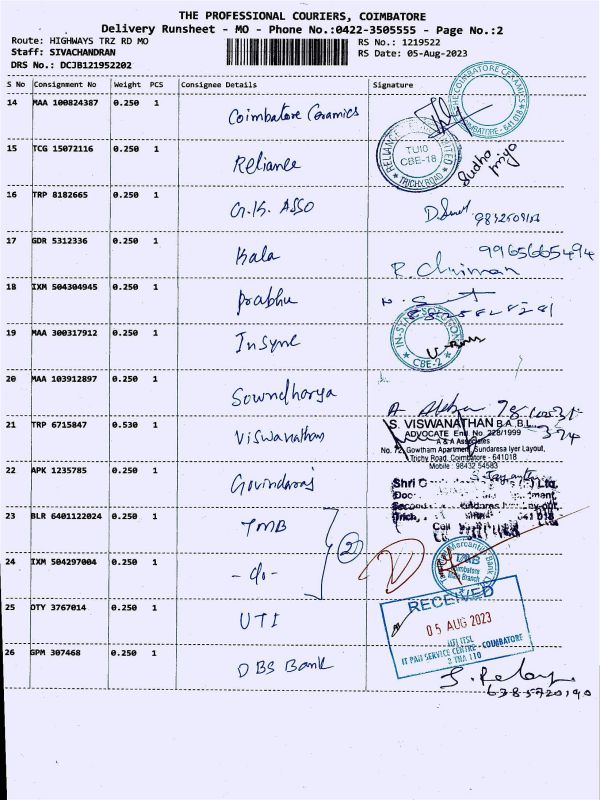 THE PROFESSIONAL COURIERS, COIMBATORE
Delivery Runsheet - MO - Phone No.:0422-3505555 - Page No.:2
Route: HIGHWAYS TRZ RD MO
RS No.: 1219522
Staff: SIVACHANDRAN
RS Date: 05-Aug-2023
DRS No.: DCJB121952202
S No Consignment No Weight PCS Consignee Details Signature
14 MAA 100824387 0.250 1 Coimbatore Ceramics
THE COIMBATORE CERAMICS
COIMBATORE - 641 018
15 TCG 15072116 0.250 1 Reliance
RELIANCE LIMITED
TUIO
CBE-18
TRICHY ROAD
Sudha priya
16 TRP 8182665 0.250 1 G.K. ASSO
17 GDR 5312336 0.250 1 Kala
9965665494
18 IXM 504304945 0.250 1 Prabhu
19 MAA 300317912 0.250 1 InSync
CBE-2
20 MAA 103912897 0.250 1 Sowndharya
21 TRP 6715847 0.530 1 Viswanathan
S. VISWANATHAN B.A.,B.L.,
ADVOCATE End. No. 228/1999
A & A Associates
No. 72, Gowtham Apartment, Sundaresa Iyer Layout,
Trichy Road, Coimbatore - 641018
Mobile : 98432 54583
22 APK 1235785 0.250 1 Govindaraj
Shri
23 BLR 6401122024 0.250 1 TMB
(2)
24 IXM 504297004 0.250 1 -do-
Mercantile Bank
TMB
Coimbatore
Main Branch
25 OTY 3767014 0.250 1 UTI
RECEIVED
05 AUG 2023
UTI ITSL
IT PAN SERVICE CENTRE - COIMBATORE
26 GPM 307468 0.250 1 DBS Bank
6385720190